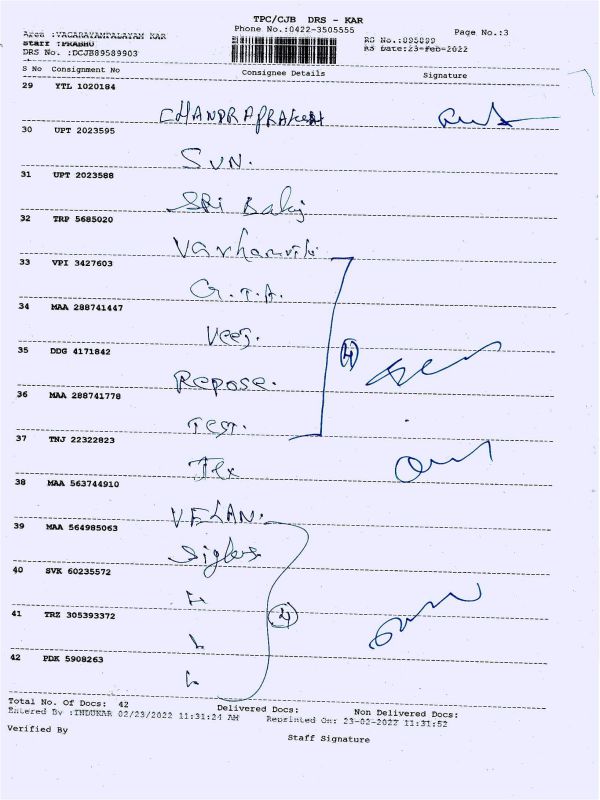 TPC/CJB DRS - KAR
Phone No.:0422-3505555
Page No.:3
Area :VAGARAYAMPALAYAM KAR
Staff :PRABHU
RS No.:895899
DRS No. :DCJB89589903
RS Date:23-Feb-2022
S No Consignment No Consignee Details Signature
29 YTL 1020184
CHANDRAPRAKASH
30 UPT 2023595
SUN.
31 UPT 2023588
SRi Balaj
32 TRP 5685020
33 VPI 3427603
G.T.A.
34 MAA 288741447
Veej.
35 DDG 4171842
4
Repose.
36 MAA 288741778
Test.
37 TNJ 22322823
38 MAA 563744910
VELAN.
39 MAA 564985063
40 SVK 60235572
41 TRZ 305393372
42 PDK 5908263
Total No. Of Docs: 42 Delivered Docs: Non Delivered Docs:
Entered By :INDUKAR 02/23/2022 11:31:24 AM Reprinted On: 23-02-2022 11:31:52
Verified By
Staff Signature